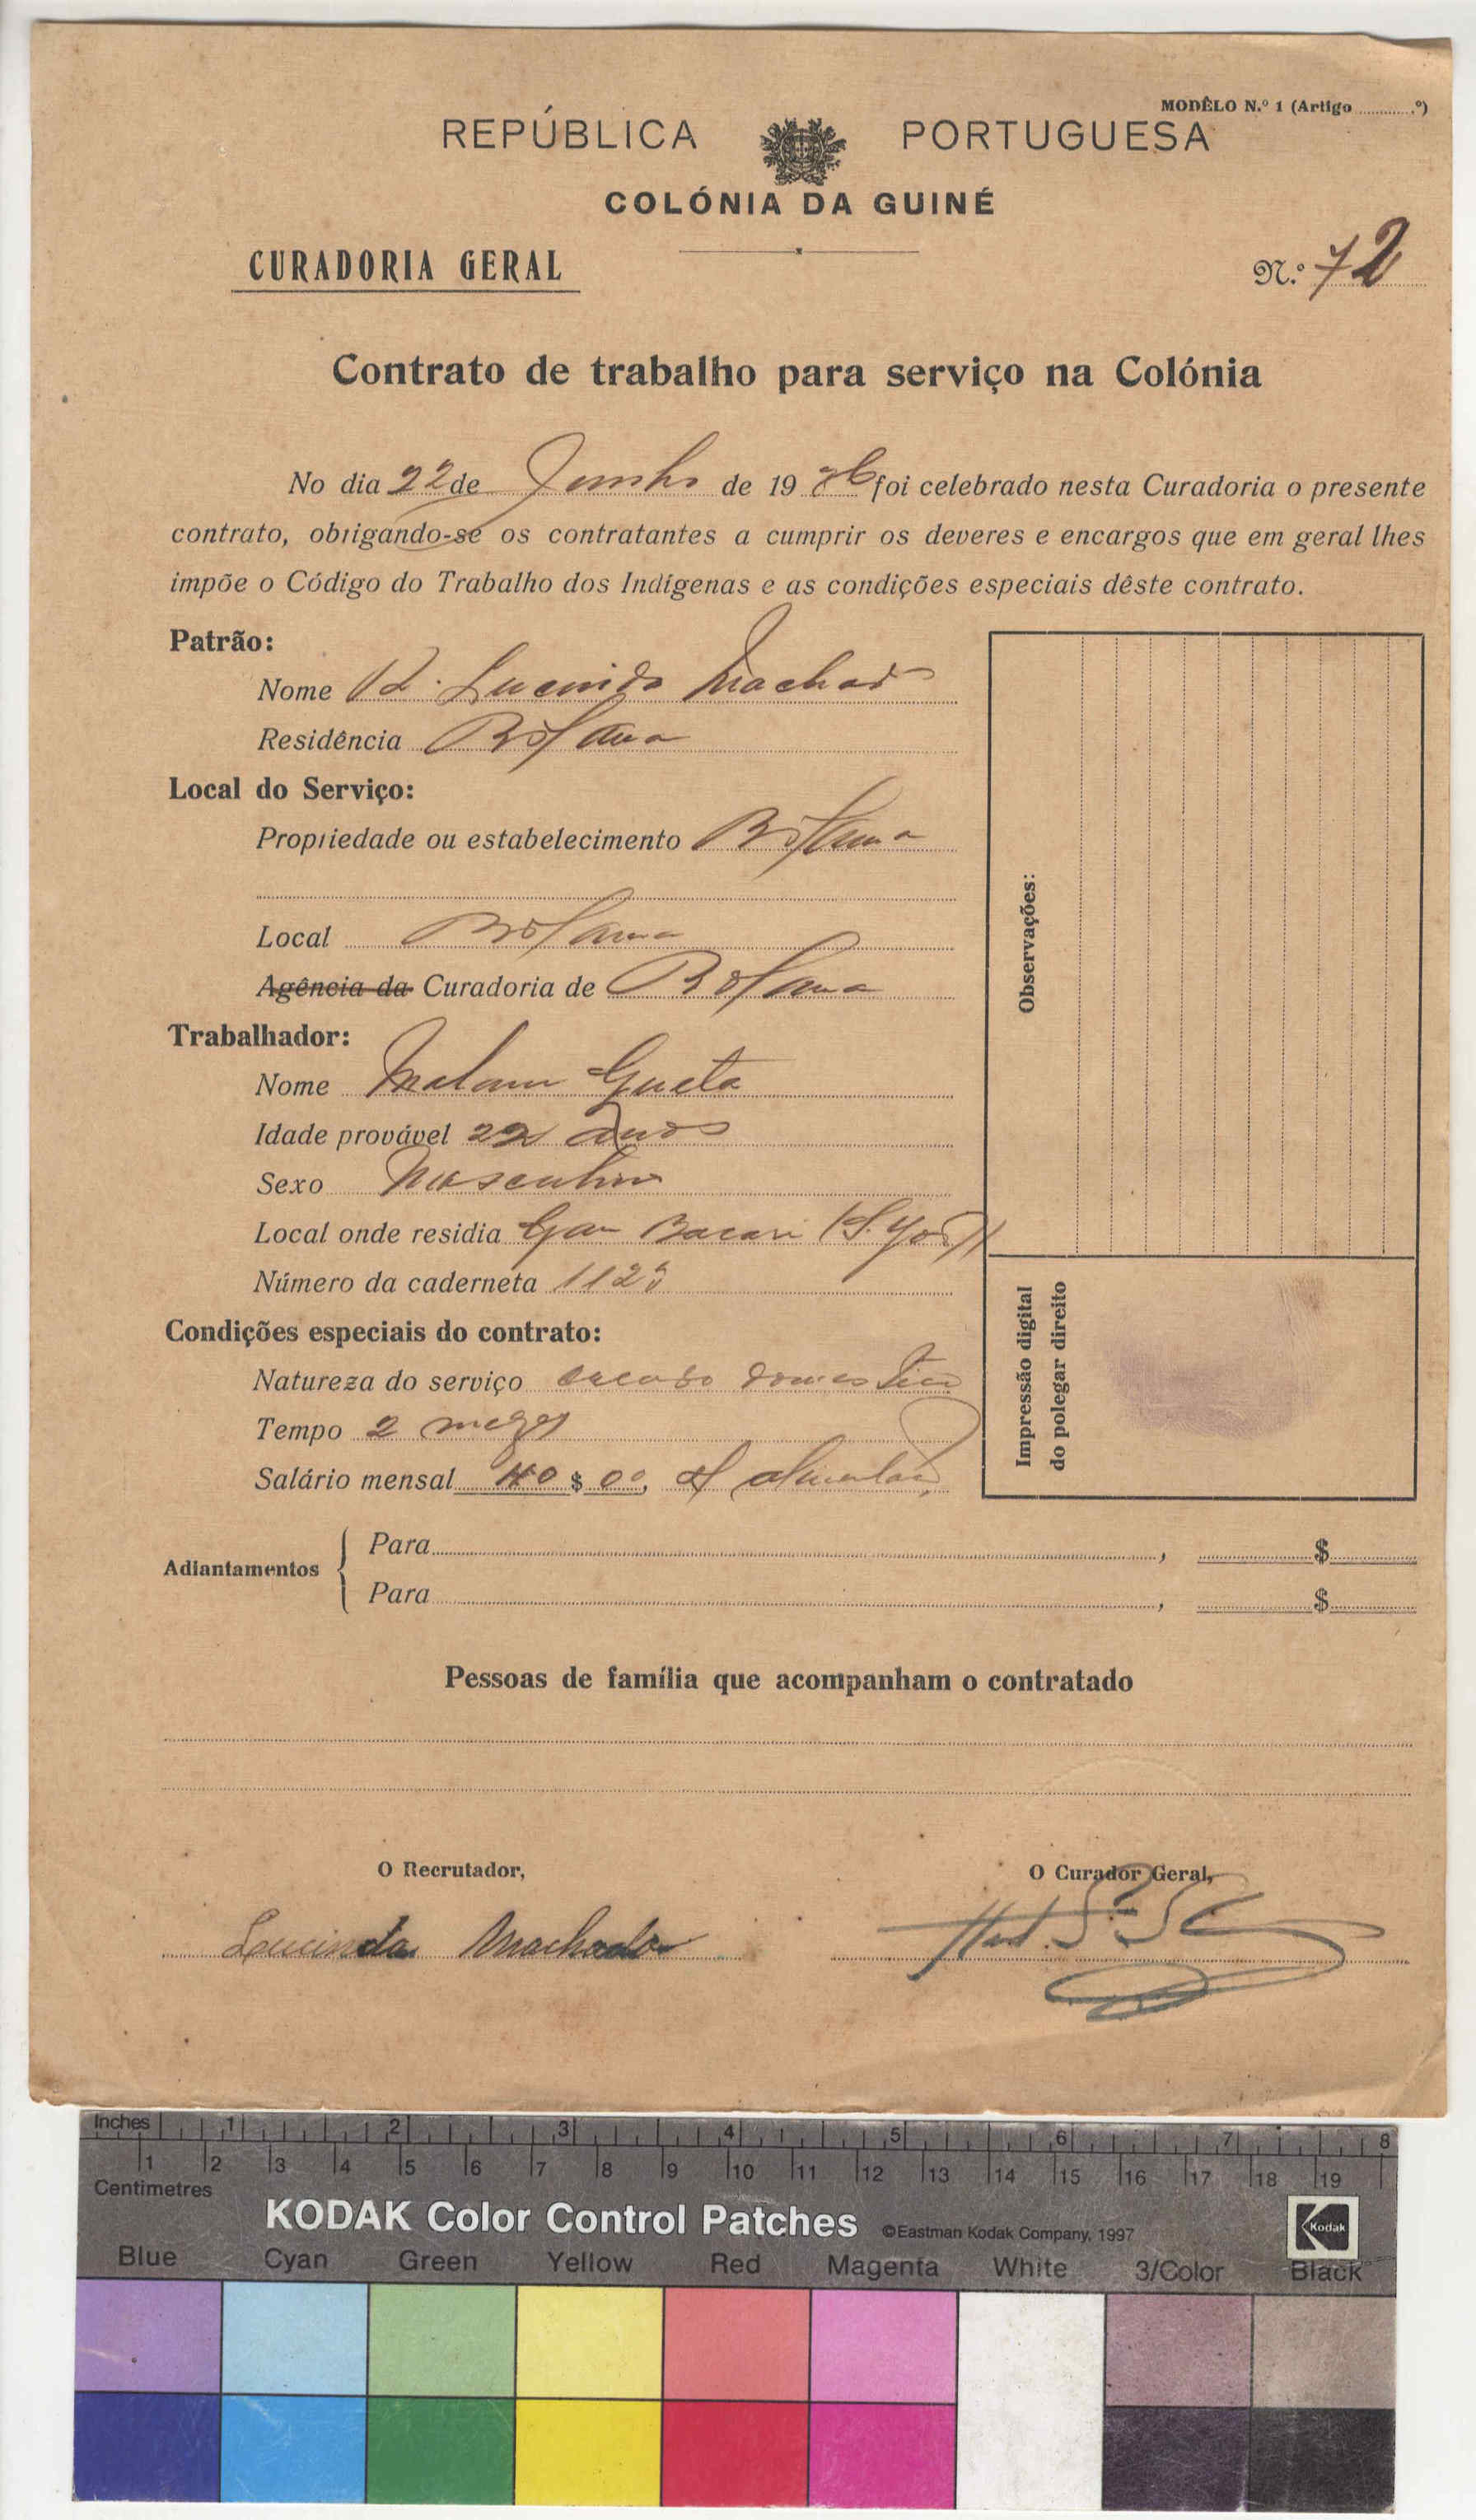 MODÊLO N.º 1 (Artigo ............º)
REPÚBLICA PORTUGUESA
COLÓNIA DA GUINÉ
CURADORIA GERAL
N.º 72
Contrato de trabalho para serviço na Colónia
No dia 22 de Junho de 1936 foi celebrado nesta Curadoria o presente
contrato, obrigando-se os contratantes a cumprir os deveres e encargos que em geral lhes
impõe o Código do Trabalho dos Indígenas e as condições especiais dêste contrato.
Patrão:
Nome D. Lucinda Machado
Residência Bolama
Local do Serviço:
Propriedade ou estabelecimento Bolama
Local Bolama
Agência da Curadoria de Bolama
Trabalhador:
Nome Malam Gueta
Idade provável 22 anos
Sexo Masculino
Local onde residia Gan Bacari
Número da caderneta 1123
Condições especiais do contrato:
Natureza do serviço creado domestico
Tempo 2 mezes
Salário mensal 40$00, alimentação
Observações:
Impressão digital
do polegar direito
Adiantamentos
Para , $
Para , $
Pessoas de família que acompanham o contratado
O Recrutador,
O Curador Geral,
Lucinda Machado
Inches 1 2 3 4 5 6 7 8
1 2 3 4 5 6 7 8 9 10 11 12 13 14 15 16 17 18 19
Centimetres
KODAK Color Control Patches ©Eastman Kodak Company, 1997 Kodak
Blue Cyan Green Yellow Red Magenta White 3/Color Black